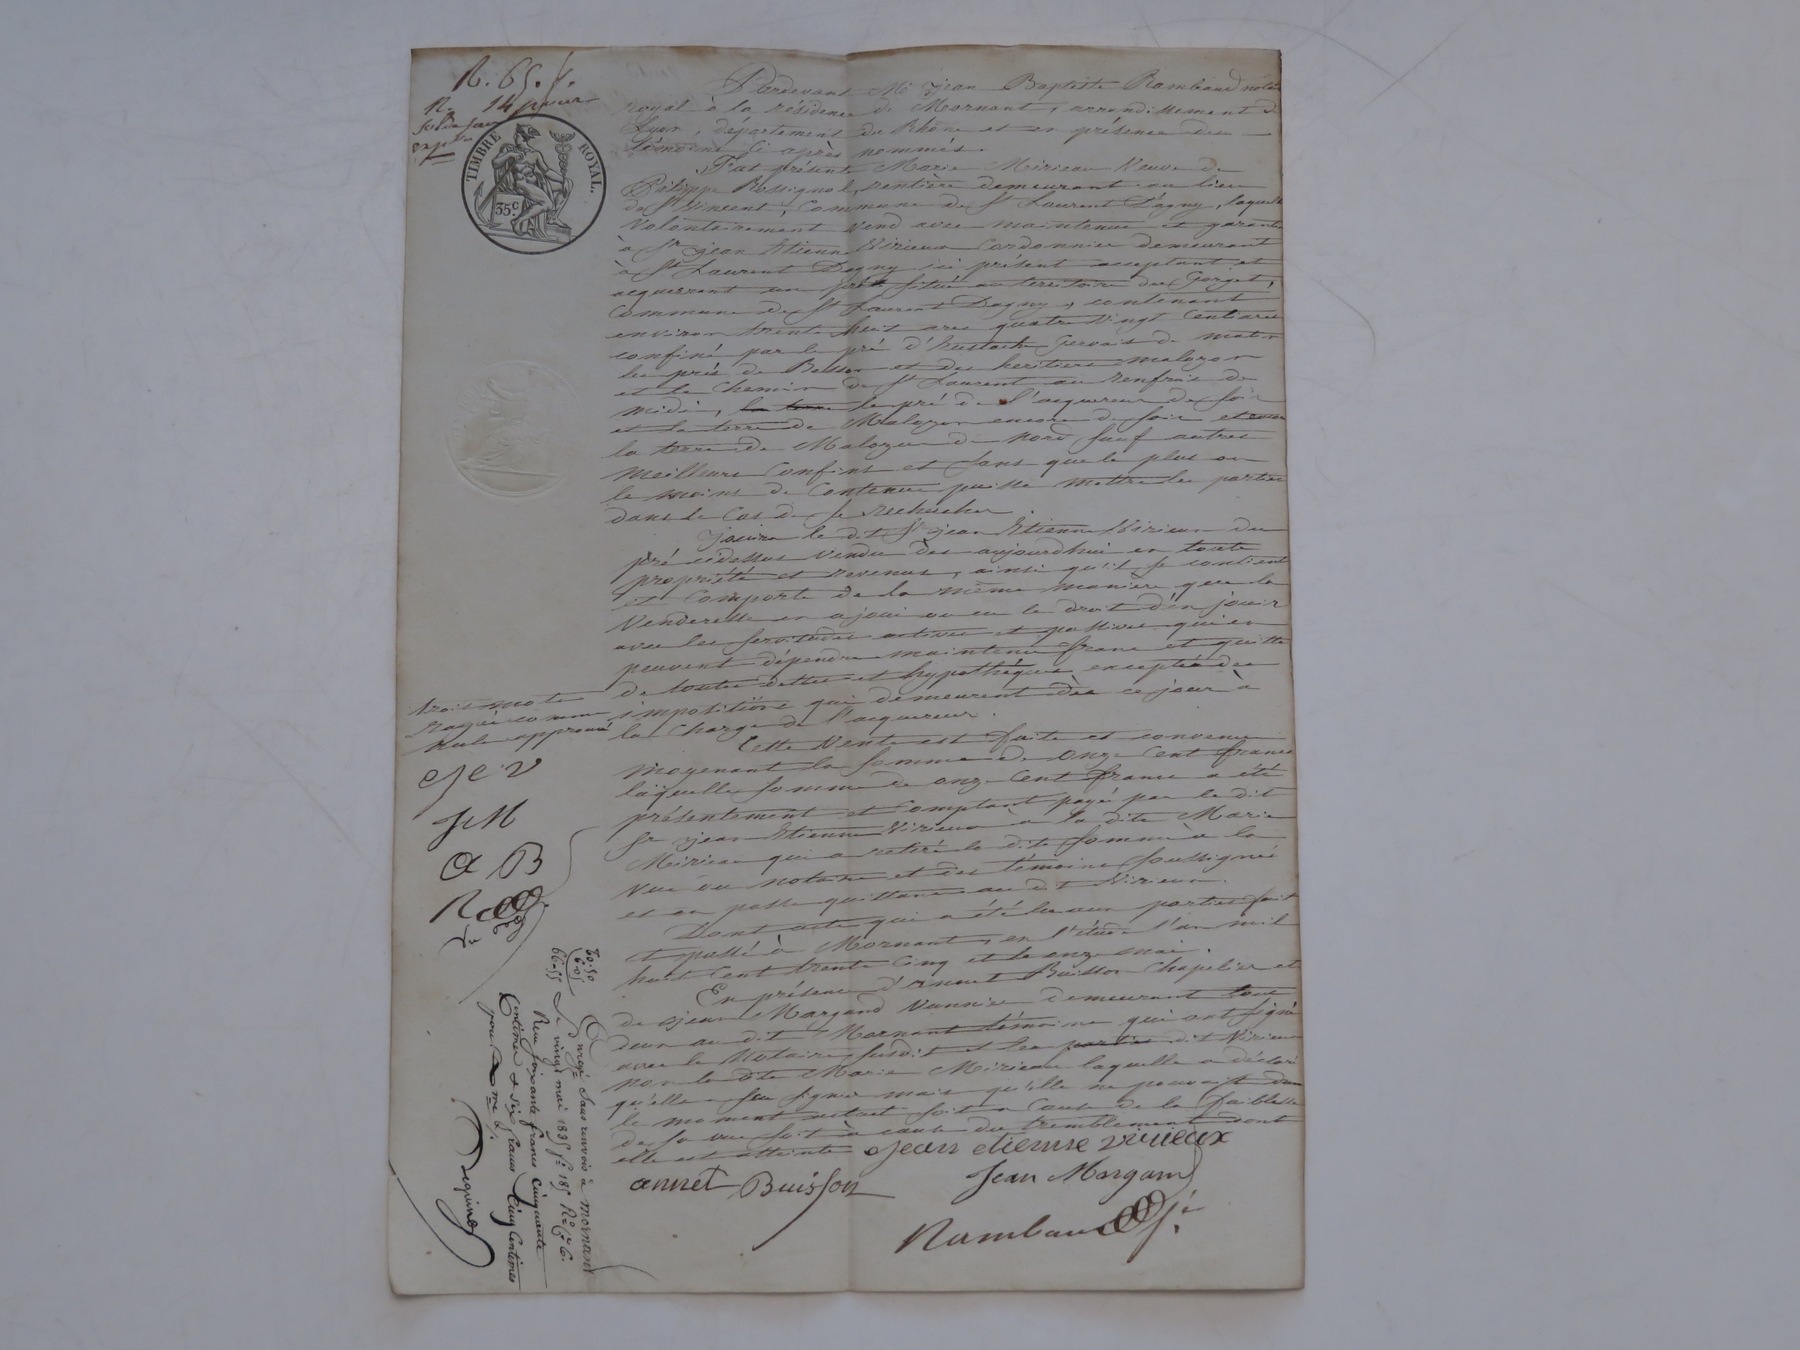 R. 65. f.
R. 14 janvier
TIMBRE ROYAL.
35 c.
Pardevant Me Jean Baptiste Rambaud notaire
royal à la résidence de Mornant, arrondissement de
Lyon, département du Rhône et en présence des
témoins ci après nommés.
Fut présente Marie Mirieau Veuve de
Philippe Rossignol, rentière demeurant au lieu
de St Vincent, Commune de St Laurent D'agny, laquelle
volontairement vend avec maintenue et garantie
à Sr jean Etienne Virieux Cordonnier demeurant
à St Laurent Dagny ici présent acceptant et
acquerrant un pré situé au territoire du Gorget,
Commune de St Laurent Dagny, contenant
environ trente huit ares quatre vingt Centiares
confiné par le pré d'Eustache Gervais de matin
les prés de Besson et des heritiers malozon
et le Chemin de St Laurent au renfrois de
midi, la terre le pré de l'acquereur de soir
et la terre de Malozon encore de soir et encore
la terre de Malozon de nord sauf autres
meilleurs Confins et sans que le plus ou
le moins de Contenue puisse mettre les parties
dans le Cas de se rechercher.
jouira le dit Sr jean Etienne Virieux du
pré cidessus vendu dès aujourdhui en toute
propriété et revenus, ainsi qu'il se contient
et Comporte de la même manière que la
Venderesse en a joui ou eu le droit d'en jouir
avec les servitudes actives et passives qui en
peuvent dépendre maintenu franc et quitte
de toutes dettes et hypothèques exceptée des
impositions qui demeurent dès ce jour à
la Charge de l'acquereur.
Cette Vente est faite et convenue
moyenant la somme de onze Cent francs
laquelle somme de onze Cent francs a été
présentement et Comptant payé par le dit
Sr jean Etienne Virieux à la dite Marie
Mirieau qui a retiré la dite somme à la
vue du notaire et des témoins soussignés
et en passe quittance au dit Virieux.
Dont acte qui a été lu aux parties fait
et passé à Mornant, en l'étude l'an mil
huit Cent trente Cinq et le onze mai.
En présence d'annet Buisson Chapelier et
de jean Margand Vannier demeurant tous
deux au dit Mornant témoins qui ont signé
avec le Notaire susdit et les parties dit Virieux
non la dite Marie Mirieau laquelle a déclaré
qu'elle a su signer mais qu'elle ne pouvait dans
le moment actuel soit à Cause de la faiblesse
de sa vue soit à cause du tremblement dont
elle est atteinte
jean etienne virieux
annet Buisson
Jean Margand
Rambaud
trois mots
rayés comme
nuls approuvé
J E V
J M
A B
R
60.50
6.05
66.55
Enregé Sans renvoi à mornant
Le vingt mai 1835 fo 185 Ro C 6.
Reçu soixante francs cinquante
Centimes & six francs Cinq Centimes
pour